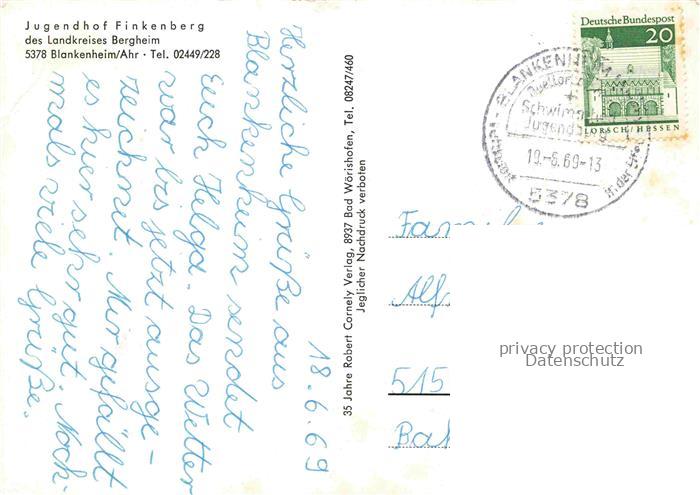 Jugendhof Finkenberg
des Landkreises Bergheim
5378 Blankenheim/Ahr · Tel. 02449/228
18.6.69
Herzliche Grüße aus
Blankenheim sendet
Euch Helga. Das Wetter
war bis jetzt ausge-
zeichnet. Mir gefällt
es hier sehr gut. Noch-
mals viele Grüße.
35 Jahre Robert Cornely Verlag, 8937 Bad Wörishofen, Tel. 08247/460
Jeglicher Nachdruck verboten
Deutsche Bundespost
20
LORSCH/HESSEN
BLANKENHEIM
19.-6.69-13
5378
Fam
Alf
515
privacy protection
Datenschutz